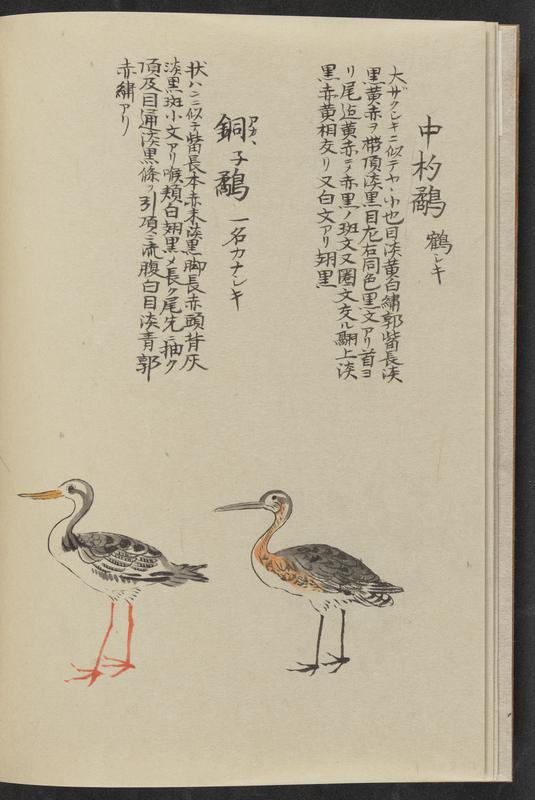 中杓鷸 鶴シキ
大ザクシキニ似テヤヽ小也目淡黄白繍郭觜長淡
黒黄赤ヲ帯頂淡黒目左右同色黒文アリ首ヨ
リ尾迄黄赤ニ〆赤黒ノ斑文又圏文交ル翮上淡
黒赤黄相交リ又白文アリ翅黒
銅子鷸 一名カナシキ
アカヽ
状ハシニ似テ觜長本赤末淡黒脚長赤頭背灰
淡黒斑小文アリ喉頬白翅黒〆長ク尾先ニ抽ク
頂及目通淡黒條ヲ引項ニ流腹白目淡青郭
赤繍アリ